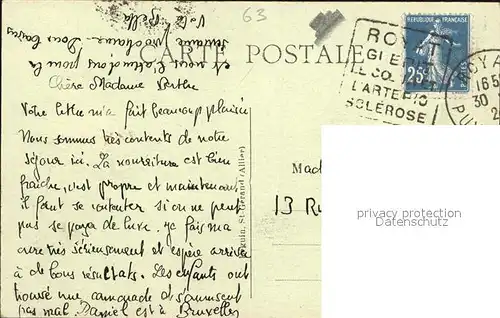 63
CARTE POSTALE
REPUBLIQUE FRANCAISE
25c
ROYAT
GUERIT
LE COEUR ET
L'ARTERIO
SCLÉROSE
ROYAT
16
30
PU
Chère Madame Berthe
Votre lettre m'a fait beaucoup plaisir
Nous sommes très contents de notre
séjour ici. La nourriture est bien
fraîche, c'est propre et maintenant
il faut se contenter si on ne peut
pas se payer de luxe. je fais ma
cure très sérieusement et espère arriver
à de bons résultats. Les enfants ont
trouvé une camarade et s'amusent
pas mal. Daniel est à Bruxelles
et nous l'attendons pour la
semaine prochaine. Bons baisers
Votre Bella
St-Gérand (Allier)
Mad
13 Ru
privacy protection
Datenschutz
www.oldthing.de